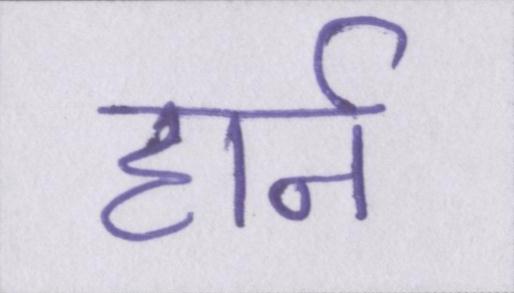 हार्न